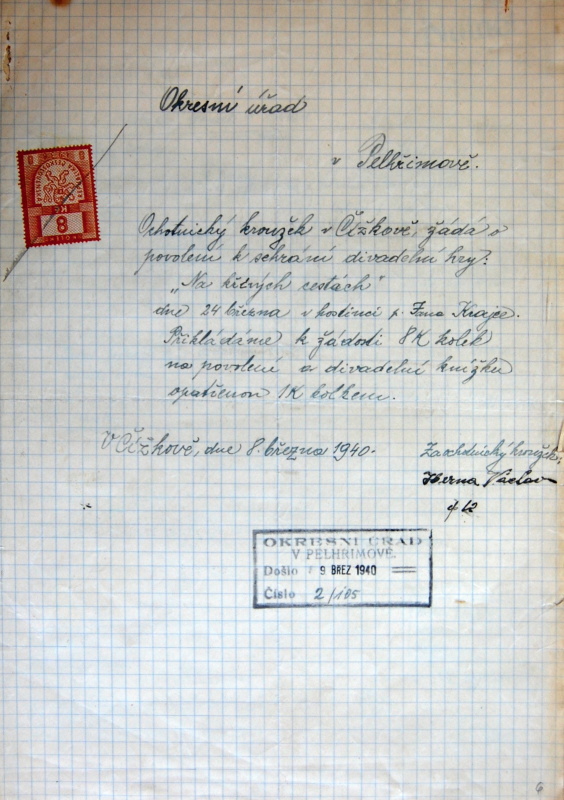 Okresní úřad
v Pelhřimově.
8
KČ
8
Ochotnický kroužek v Čížkově, žádá o
povolení k sehrání divadelní hry:
„Na křivých cestách"
dne 24 března v hostinci p. Jana Krajce.
Přikládáme k žádosti 8K kolek
na povolení a divadelní knížku
opatřenou 1K kolkem.
V Čížkově, dne 8. března 1940.
Za ochotnický kroužek:
Herna Václav
č 12
OKRESNÍ ÚŘAD
V PELHŘIMOVĚ.
Došlo 9 BŘEZ 1940
Číslo 2/105
6